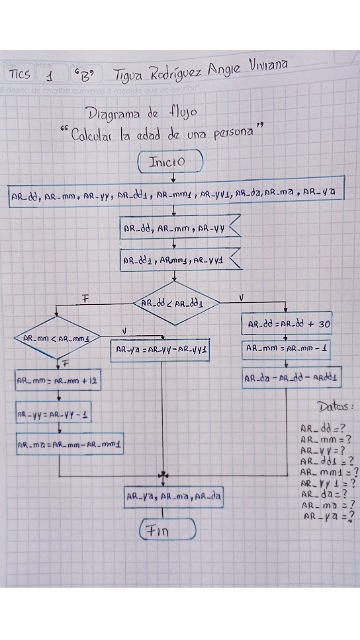 TICS 1 "B" Tigua Rodríguez Angie Viviana
Diagrama de flujo
"Calcular la edad de una persona"
Inicio
AR_dd, AR_mm, AR_yy, AR_dd1, AR_mm1, AR_yy1, AR_da, AR_ma, AR_ya
AR_dd, AR_mm, AR_yy
AR_dd1, ARmm1, AR_yy1
AR_dd < AR_dd1
F
V
AR_mm < AR_mm1
V
F
AR_ya = AR_yy - AR_yy1
AR_dd = AR_dd + 30
AR_mm = AR_mm - 1
AR_da - AR_dd - ARdd1
AR_mm = AR_mm + 12
AR_yy = AR_yy - 1
AR_ma = AR_mm - AR_mm1
AR_ya, AR_ma, AR_da
Fin
Datos:
AR_dd = ?
AR_mm = ?
AR_yy = ?
AR_dd1 = ?
AR_mm1 = ?
AR_yy1 = ?
AR_da = ?
AR_ma = ?
AR_ya = ?